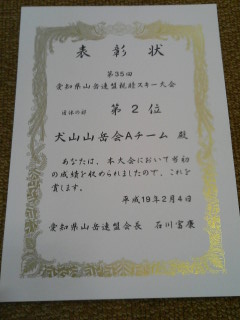 表彰状
第35回
愛知県山岳連盟競技スキー大会
団体の部 第2位
犬山山岳会Aチーム 殿
あなたは、本大会において頭初
の成績を収められましたので、これを
賞します。
平成19年2月4日
愛知県山岳連盟会長 石川富康